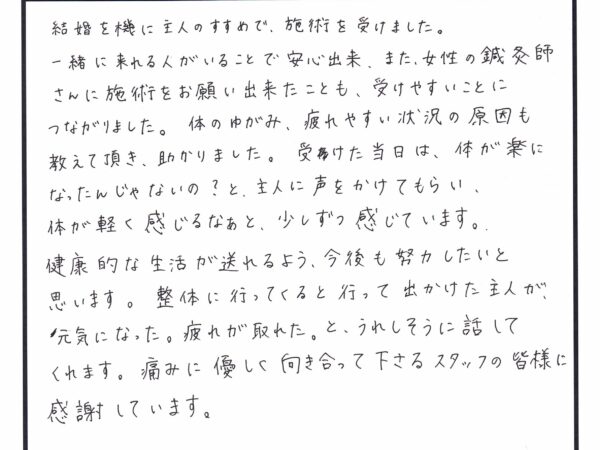 結婚を機に主人のすすめで、施術を受けました。
一緒に来れる人がいることで安心出来、また、女性の鍼灸師
さんに施術をお願い出来たことも、受けやすいことに
つながりました。体のゆがみ、疲れやすい状況の原因も
教えて頂き、助かりました。受けた当日は、体が楽に
なったんじゃないの？と、主人に声をかけてもらい、
体が軽く感じるなぁと、少しずつ感じています。
健康的な生活が送れるよう、今後も努力したいと
思います。整体に行ってくると行って出かけた主人が、
元気になった。疲れが取れた。と、うれしそうに話して
くれます。痛みに優しく向き合って下さるスタッフの皆様に
感謝しています。